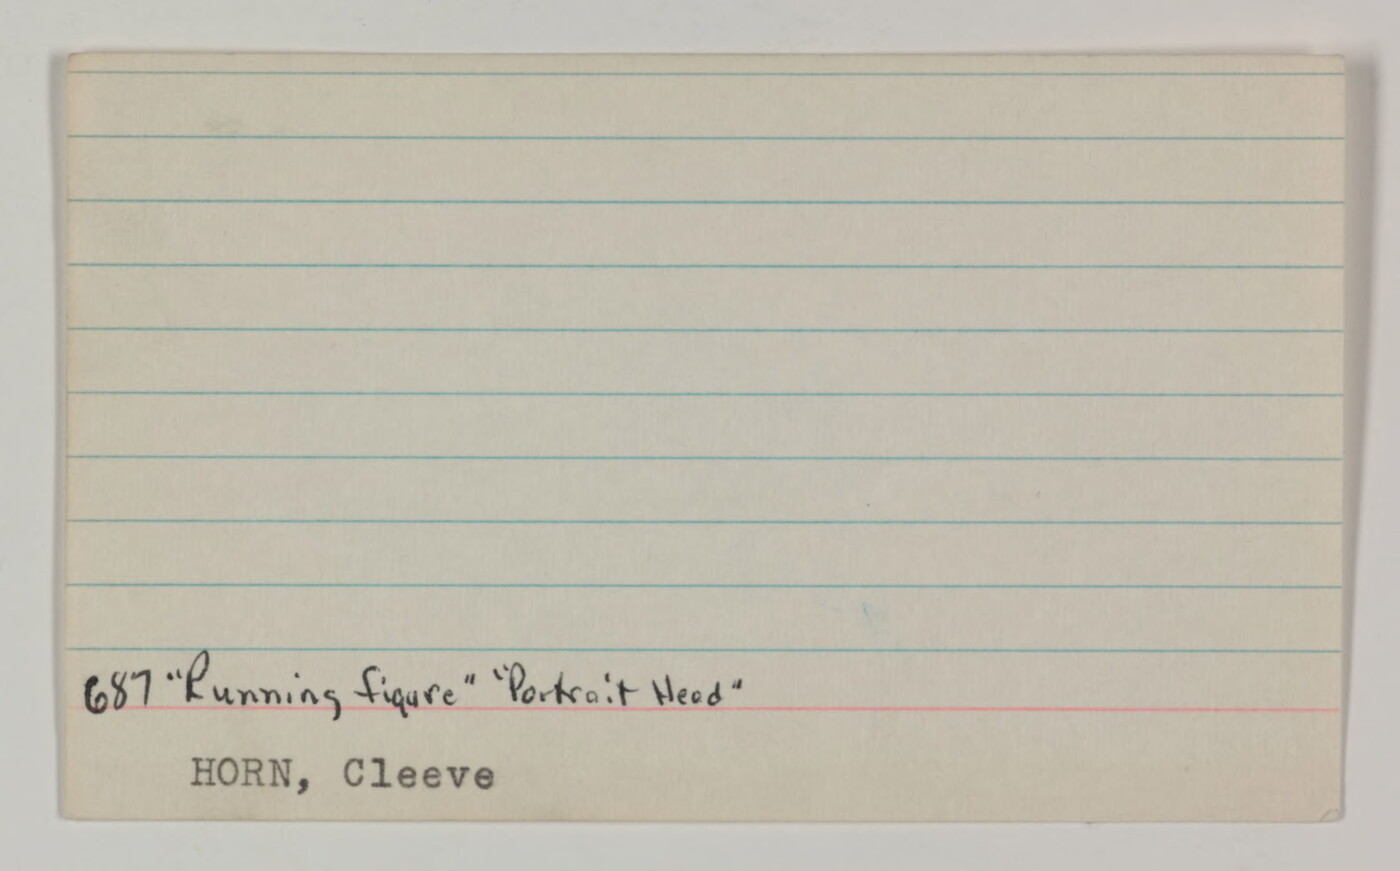 687 "Running figure" "Portrait Head"
HORN, Cleeve